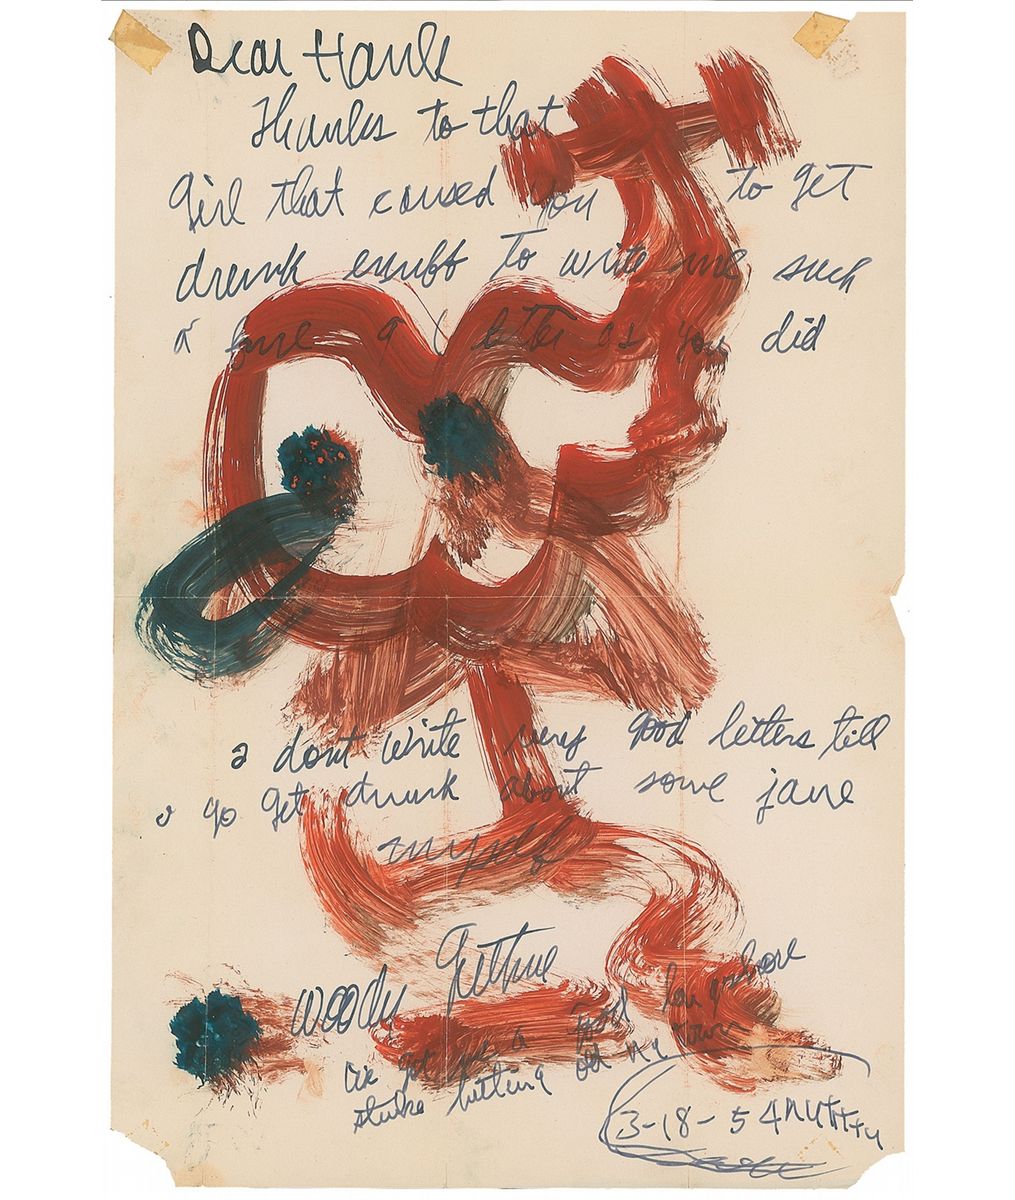 Dear Hank
Thanks to that
girl that caused you to get
drunk enuff to write me such
a fine a letter as you did
I dont write very good letters till
I go get drunk about some jane
myself
Woody Guthrie
Ive got me a good
hitting old
3-18-54